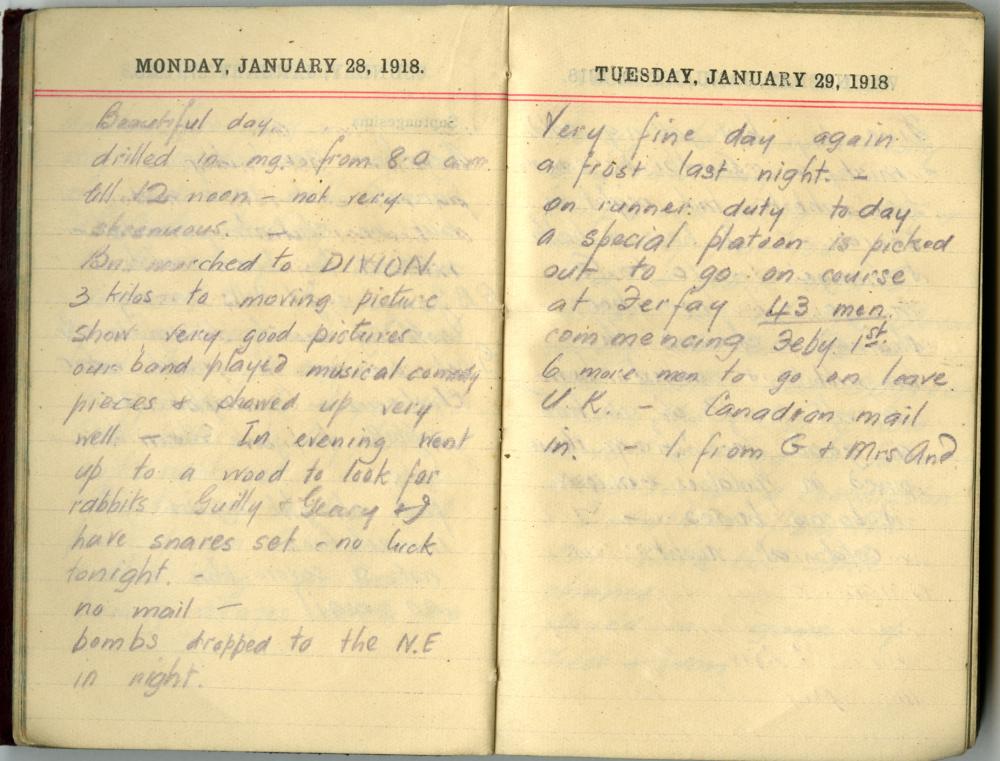 MONDAY, JANUARY 28, 1918.
Beautiful day.
drilled in mg. from 8.0 a.m.
till 12 noon – not very
strenuous. –
Bn. marched to DIVION.
3 kilos to moving picture
show very good pictures
our band played musical comedy
pieces & showed up very
well – In evening went
up to a wood to look for
rabbits Gully & Geary & I
have snares set – no luck
tonight. –
no mail –
bombs dropped to the N.E
in night.
TUESDAY, JANUARY 29, 1918
Very fine day again
a frost last night. –
on runner. duty to day
a special platoon is picked
out to go on course
at Ferfay 43 men.
commencing Feby. 1st.
6 more men to go on leave.
U.K. – Canadian mail
in. – 1. from G & Mrs And